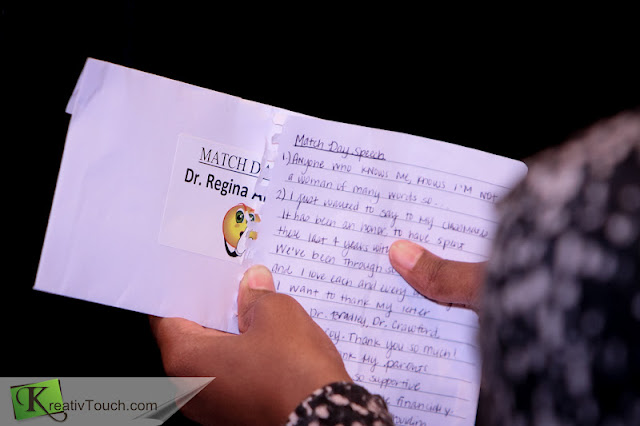 MATCH D
Dr. Regina A
Match Day Speech
1) Anyone who knows me, knows I'm not
a woman of many words so...
2) I just wanted to say to my classmates
It has been an honor to have spent
these last 4 years with
We've been through
and I love each and every
I want to thank my letter
Dr. Bradley, Dr. Crawford,
Thank you so much!
my parents
so supportive
financially,
KreativTouch.com